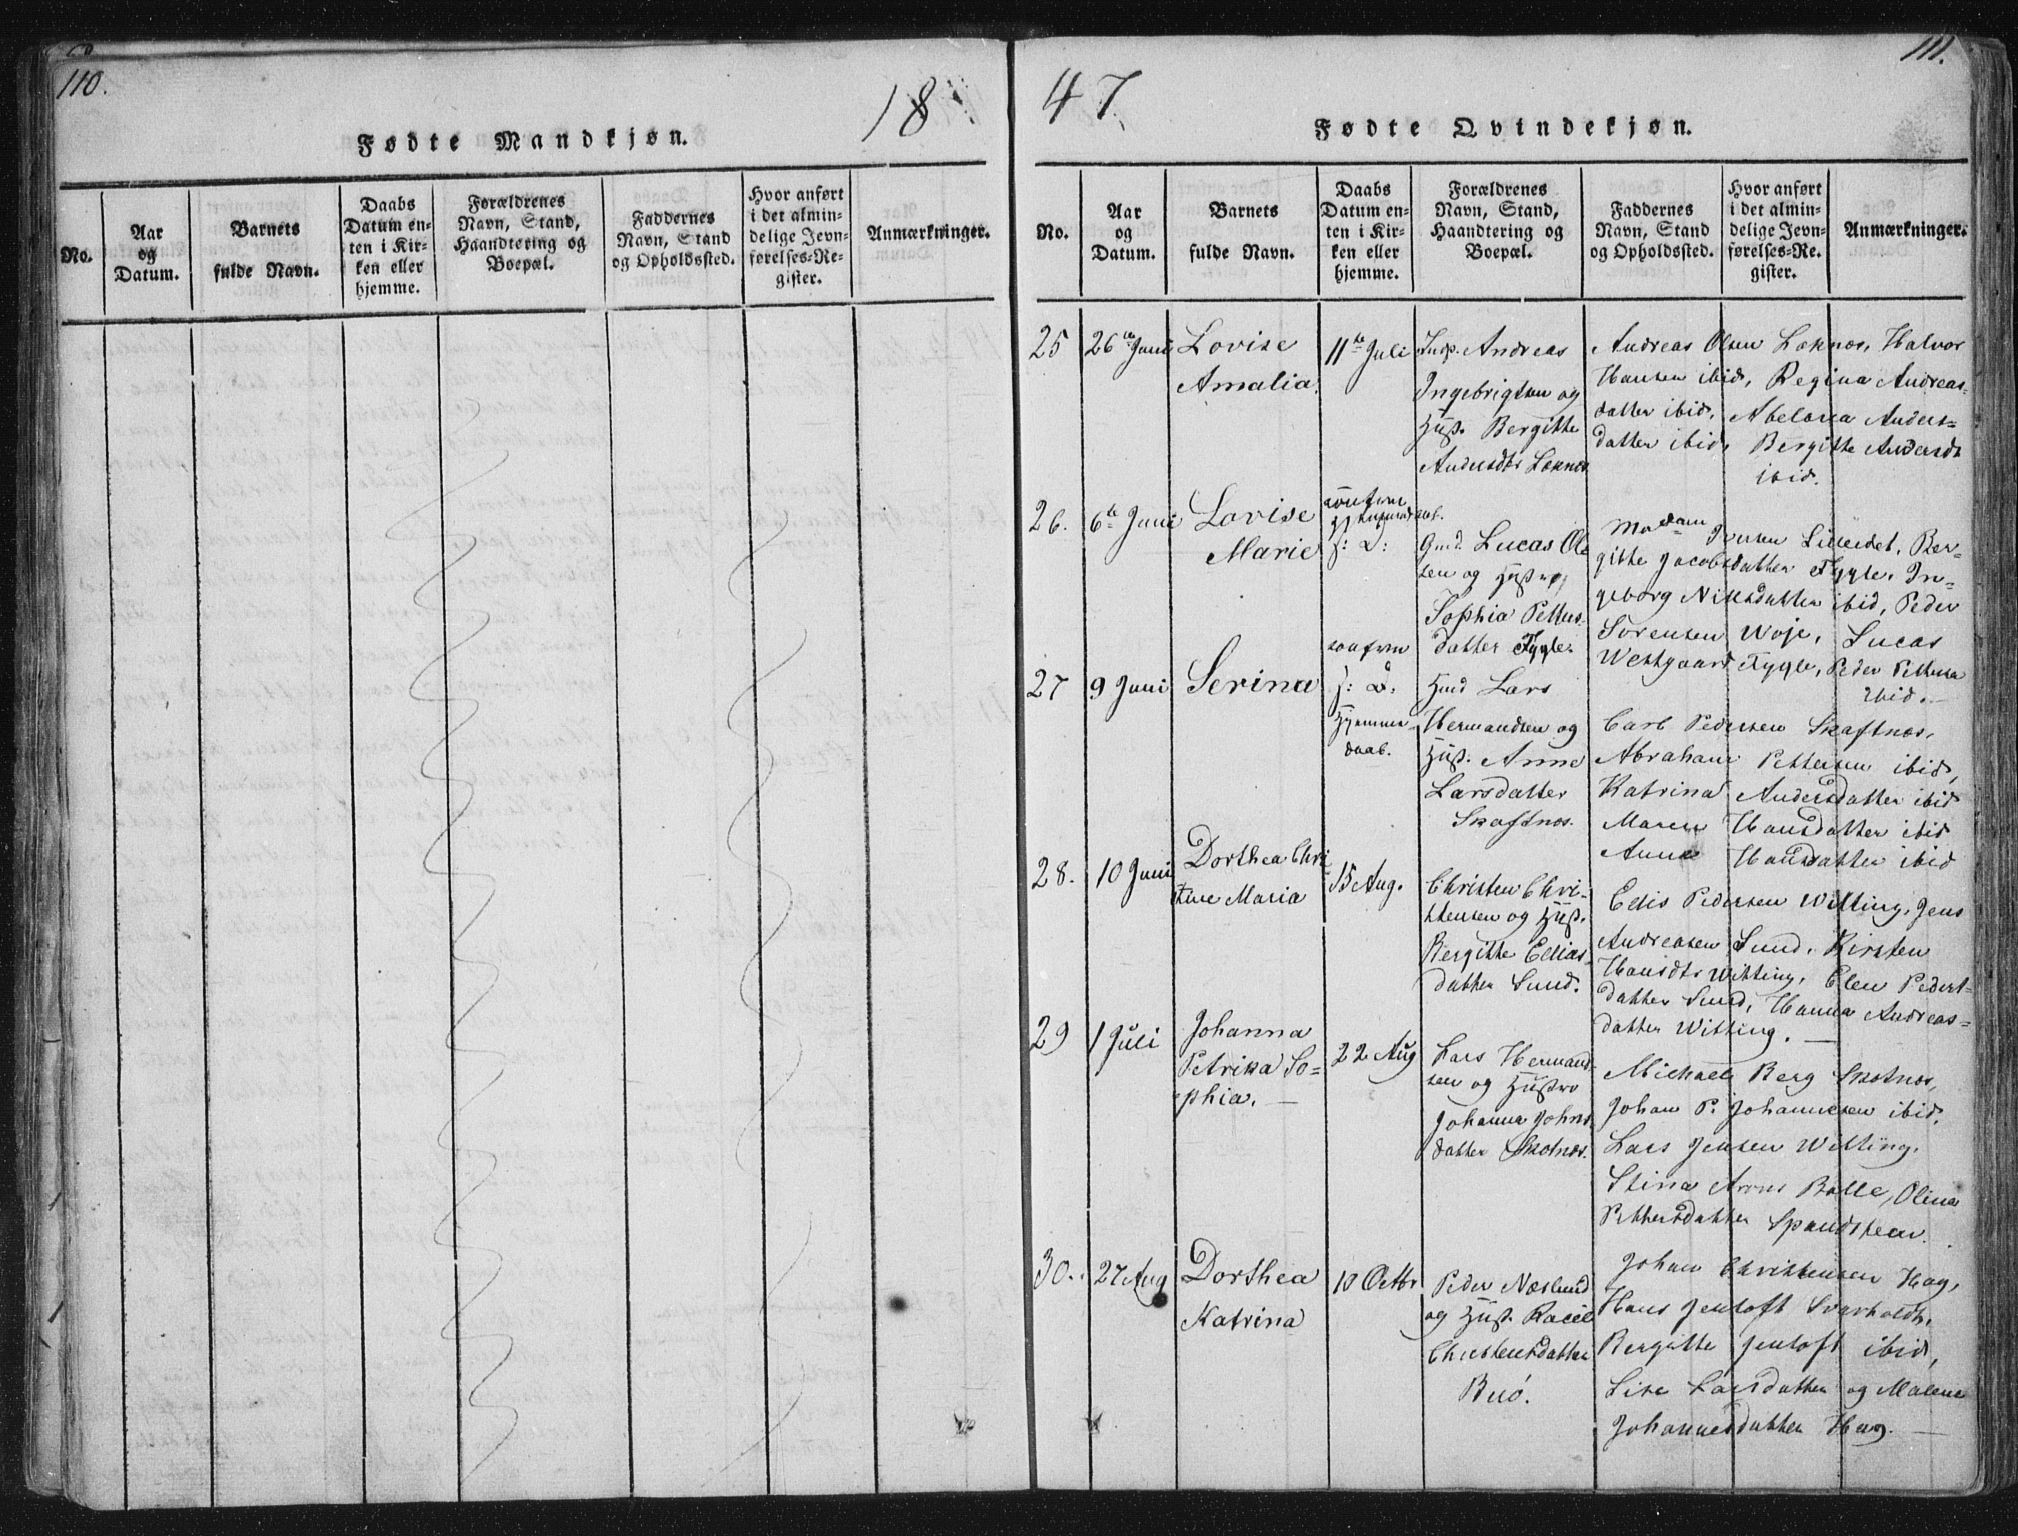 110.
18
Fødte Mandkjøn.
No.
Aar
og
Datum.
Barnets
fulde Navn.
Daabs
Datum en-
ten i Kir-
ken eller
hjemme.
Forældrenes
Navn, Stand,
Haandtering og
Boepæl.
Faddernes
Navn, Stand
og Opholdssted.
Hvor anført
i det almin-
delige Jevn-
førelses-Re-
gister.
Anmærkninger.
111.
47
Fødte Qvindekjøn.
No.
Aar
og
Datum.
Barnets
fulde Navn.
Daabs
Datum en-
ten i Kir-
ken eller
hjemme.
Forældrenes
Navn, Stand,
Haandtering og
Boepæl.
Faddernes
Navn, Stand
og Opholdssted.
Hvor anført
i det almin-
delige Jevn-
førelses-Re-
gister.
Anmærkninger.
25
26te Juni
Lovise
Amalia.
11te Juli
Insp. Andreas
Ingebrigtsen og
Hust. Bergitte
Andersdtr Løknes
Andreas Olsen Løknes, Halvor
Hansen ibid, Regina Andreas-
datter ibid, Abelona Anders-
datter ibid, Bergitte Andersdt
ibid.
26.
6te Juni
Lovise
Marie
f: D:
Gmd. Lucas Ol-
sen og Hustro
Sophia Pettus-
datter Tygle
Madam Iversen Lilleidet, Ber-
gitte Jacobsdatter Tygle, In-
geborg Nilsdatter ibid, Peder
Sørensen Woje, Lucas
Westgaard Tygle, Peder Pettersen
ibid.
27
9 Juni
Serina
f: D:
Hjemme-
daab.
Hmd Lars
Hermandsen og
Hust. Anne
Larsdatter
Skaftnes.
Carl Pedersen Skaftnes,
Abraham Pettersen ibid,
Katrina Andersdatter ibid
Maren Hansdatter ibid
Anne Hansdatter ibid
28.
10 Juni
Dorthea Chri
stine Maria
15 Aug.
Christen Chri-
stensen og Hust.
Bergitte Elias-
datter Sund.
Elis Pedersen Witting, Jens
Andreasen Sund, Kirsten
Hansdtr Witting, Elen Peders-
datter Sund, Hanna Andreas-
datter Witting.
29
1 Juli
Johanna
Petrika So-
phia.
22 Aug
Lars Hermand-
sen og Hustro
Johanna Johns-
datter Skotnes.
Michael Berg Skotnes,
Johan P. Johannesen ibid.
Lars Jensen Witting.
Stina Arons Balle, Olina
Pettersdatter Spandsteen.
30.
27 Aug
Dorthea
Katrina
10 Octbr
Peder Næslund
og Hust. Racel
Christensdatter
Buø.
Johan Christensen Hag,
Hans Jentoft Svarholdt,
Bergitte Jentoft ibid,
Lise Larsdatter og Malene
Johannesdatter Hag.